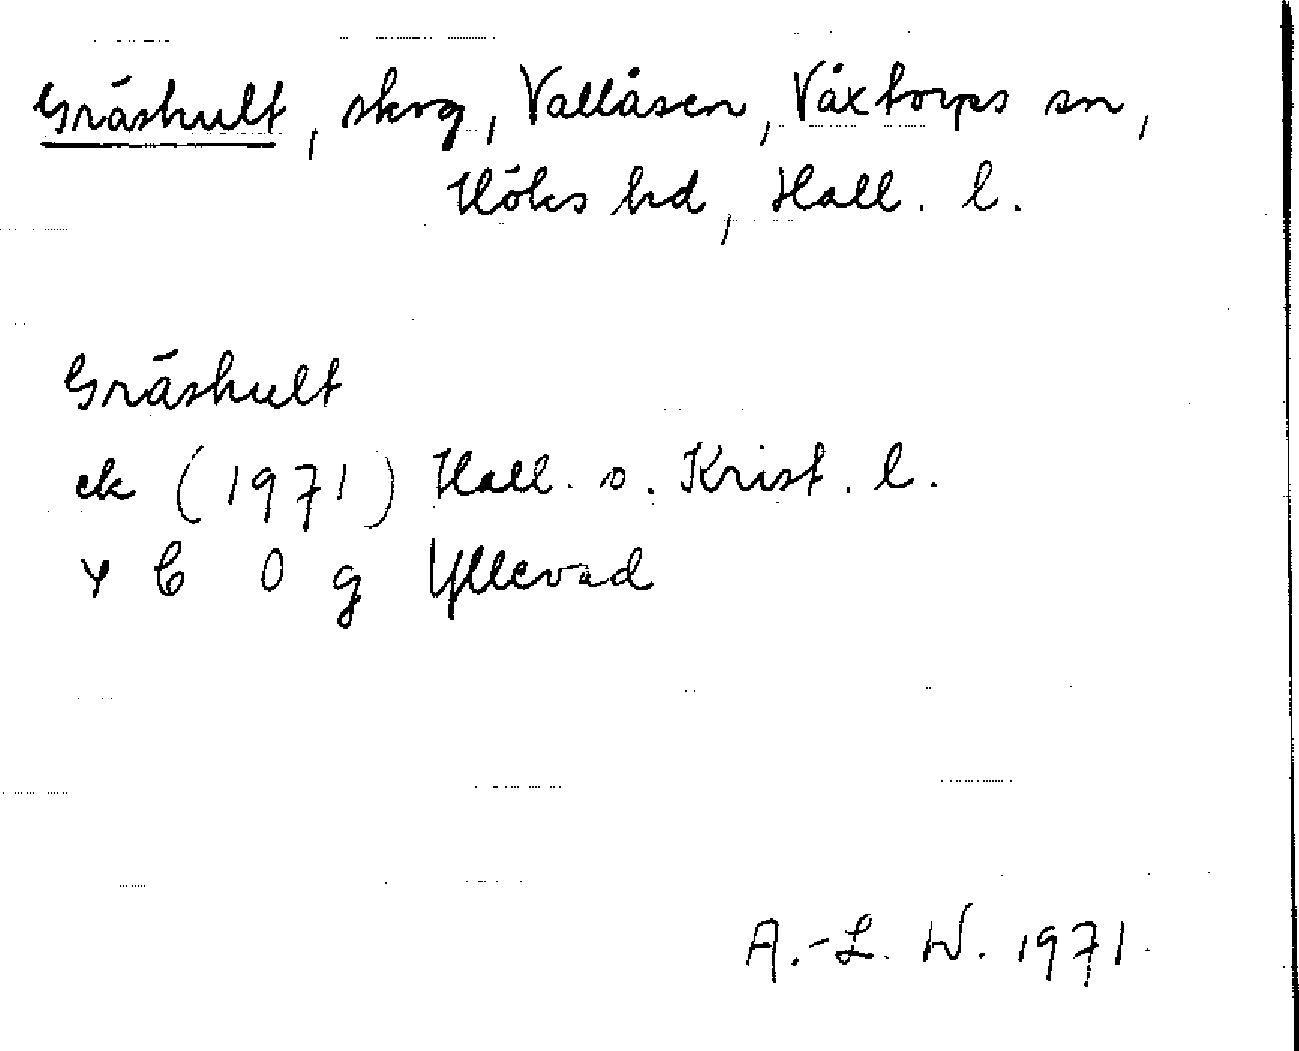 Gräshult, skog, Vallåsen, Våxtorps sn,
Höks hd, Hall. l.
Gräshult
ek (1971) Hall. o. Krist. l.
Y C 0 g Yllevad
A.-L. W. 1971.